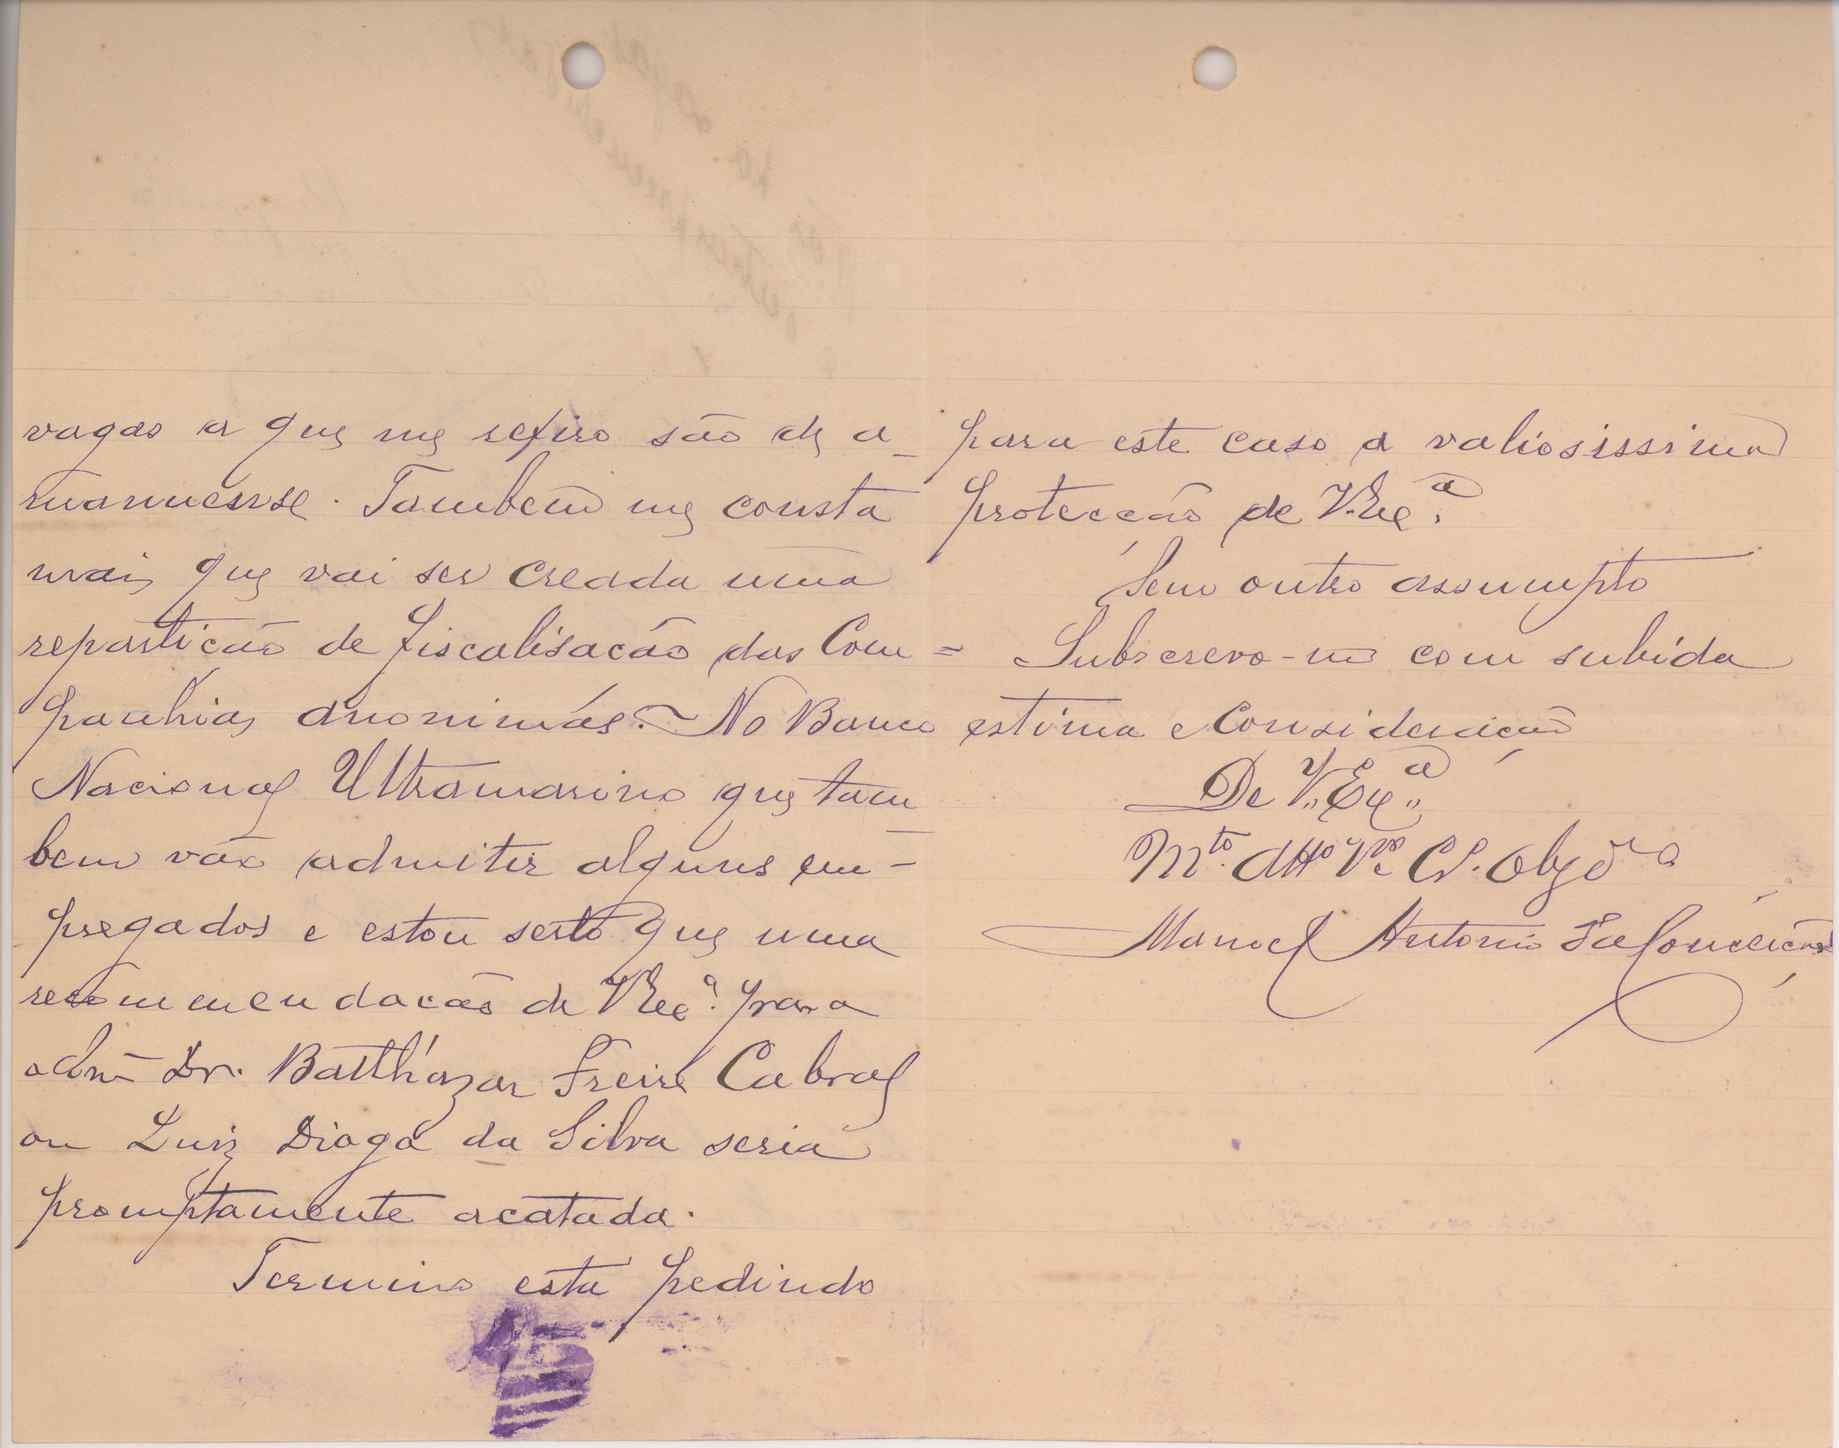 vagas a que me refiro são de a-
manuense. Tambem me consta
mais que vai ser creada uma
repartição de fiscalisação das Com=
panhias anonimás. ~ No Banco
Nacional Ultramarino que tam
bem vão admitir alguns em-
pregados e estou serto que uma
recommendação de V.Exª. para
Dr. Baltházar Freire Cabral
ou Luiz Diogo da Silva seria
promptamente acatada.
Termino esta pedindo
para este caso a valiosissima
protecção de V.Exª.
Sem outro assumpto
Subscrevo-me com subida
estima e Consideração
De V.. Exª..
Mto. Atto Vor Cr. Obgdo
Manoel Antonio da Conceição